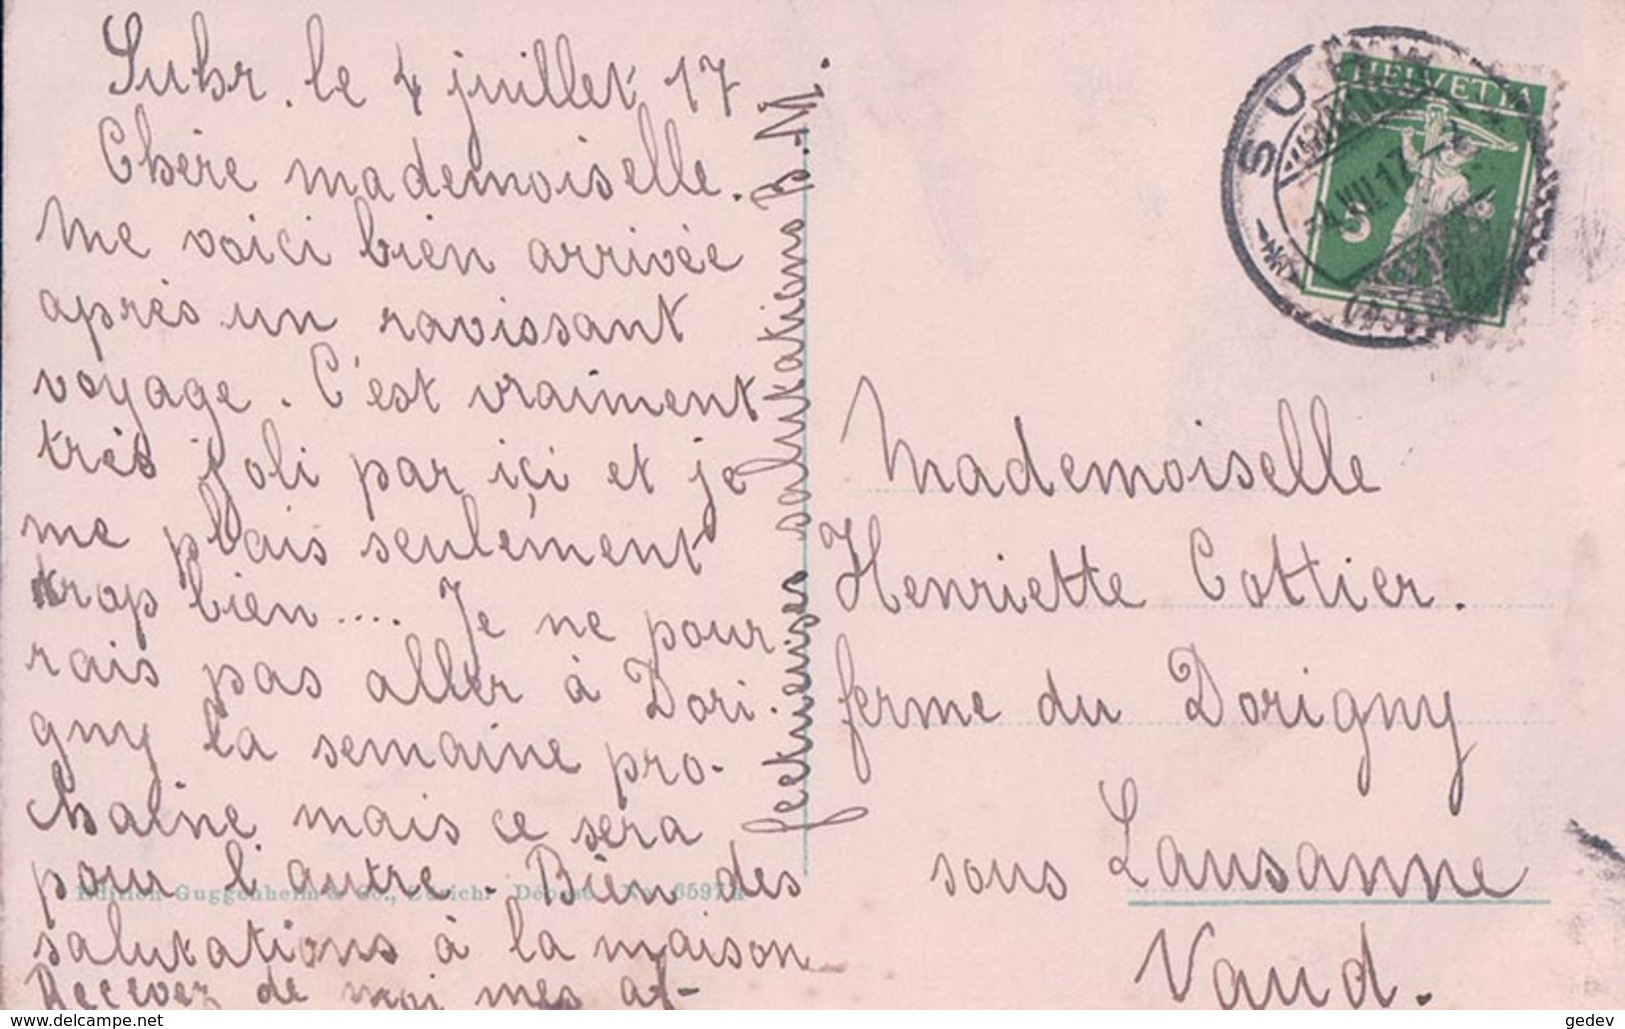 Suhr. le 4 juillet 17
Chère mademoiselle.
Me voici bien arrivée
après un ravissant
voyage. C'est vraiment
très joli par ici et je
me plais seulement
trop bien.... Je ne pour
rais pas aller à Dori.
gny la semaine pro-
chaine mais ce sera
pour l'autre. Bien des
salutations à la maison
Recevez de moi mes af-
fectueuses salutations B.M.
Edition Guggenheim & Co., Zürich. Déposé No. 6597
HELVETIA
5
SUHR
4.VII.17
Mademoiselle
Henriette Cottier.
ferme du Dorigny
sous Lausanne
Vaud.
www.delcampe.net
gedev